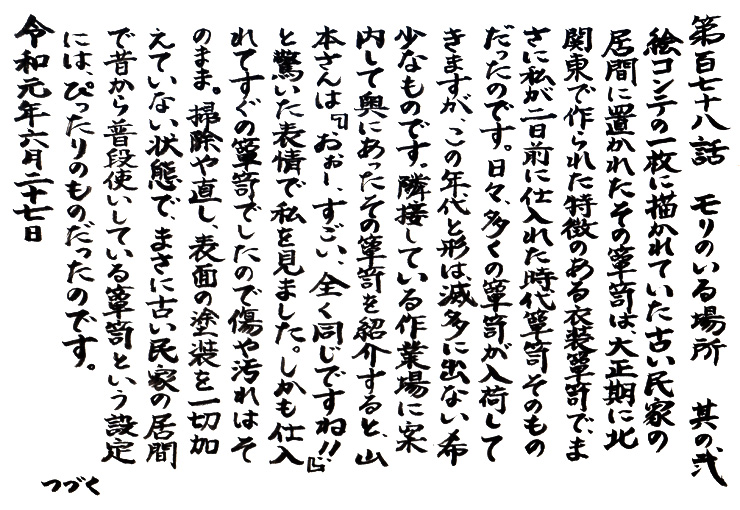 第百七十八話　モリのいる場所　其の弐
絵コンテの一枚に描かれていた古い民家の
居間に置かれたその簞笥は、大正期に北
関東で作られた特徴のある衣装簞笥で、ま
さに私が二日前に仕入れた時代簞笥そのもの
だったのです。日々、多くの簞笥が入荷して
きますが、この年代と形は、滅多に出ない希
少なものです。隣接している作業場に案
内して奥にあったその簞笥を紹介すると、山
本さんは『おぉー、すごい、全く同じですね!!』
と驚いた表情で私を見ました。しかも仕入
れてすぐの簞笥でしたので傷や汚れはそ
のまま。掃除や直し、表面の塗装を一切加
えていない状態で、まさに古い民家の居間
で昔から普段使いしている簞笥という設定
には、ぴったりのものだったのです。
令和元年六月二十七日
つづく